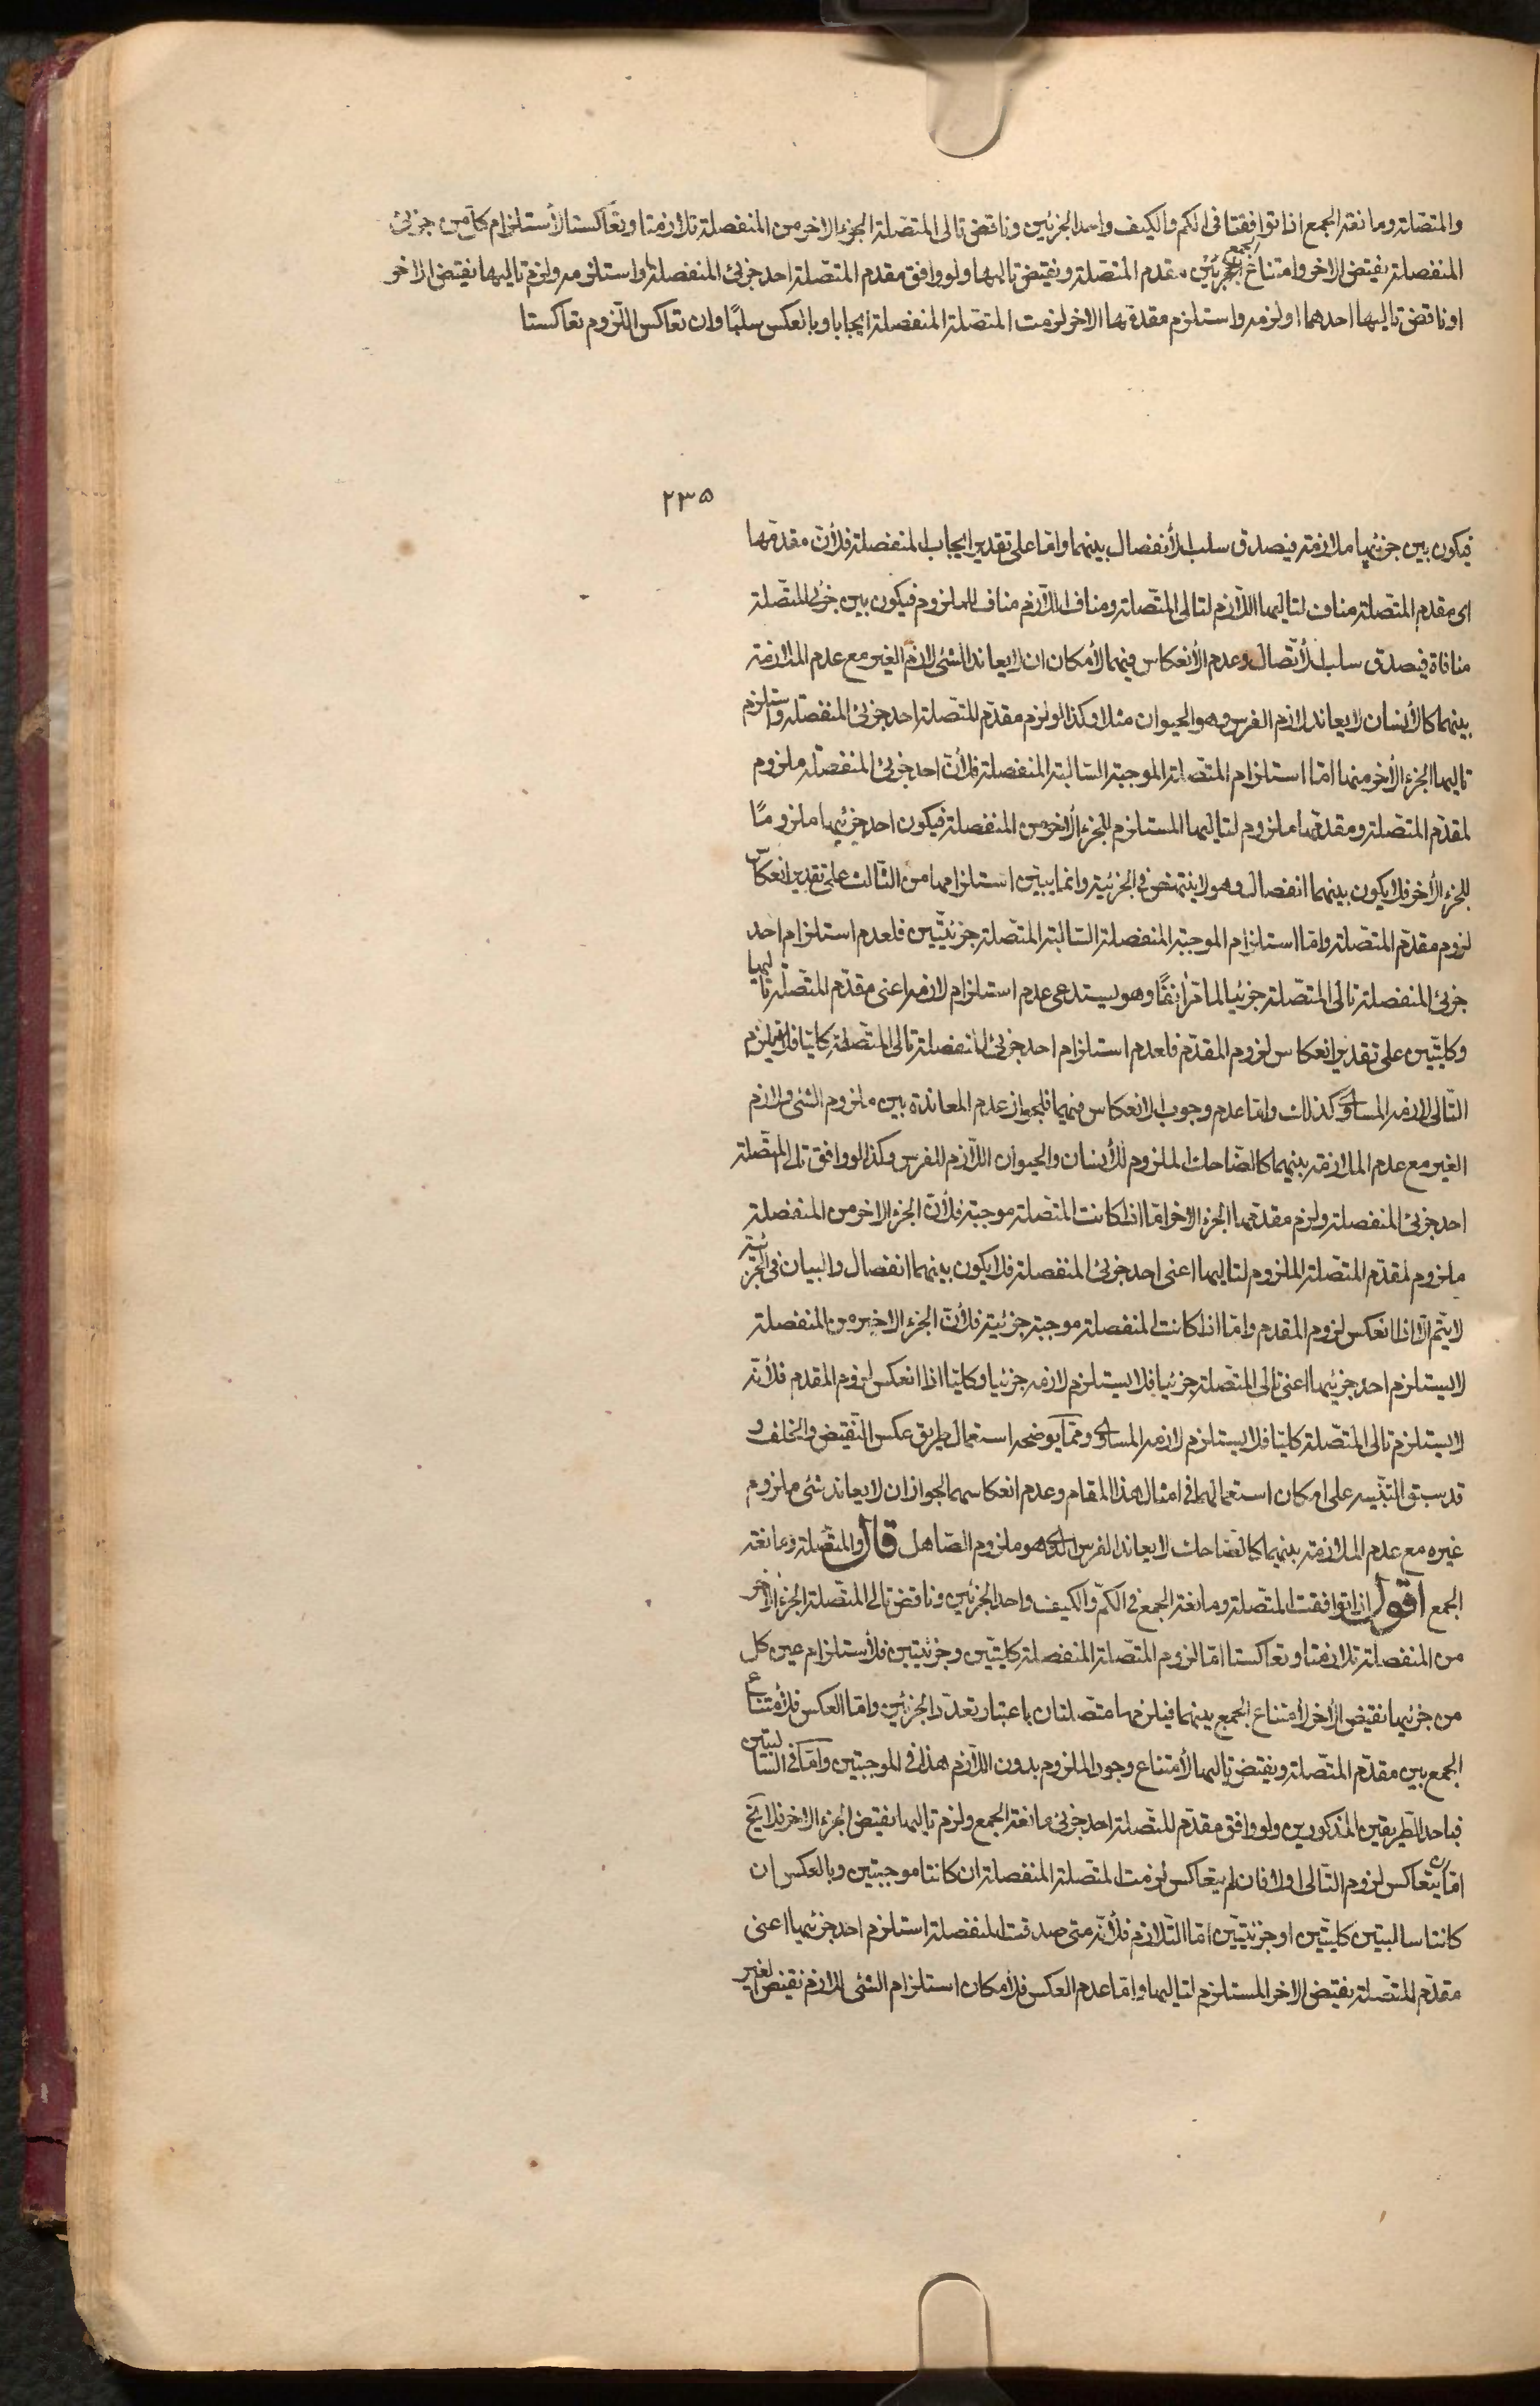 والمتصلة ومانعة الجمع اذا توافقتا فى الكم والكيف واحد الجزئين وناقض تالى المتصلة الجزء الاخر من المنفصلة تلازمتا وتعاكستا لأستلزام كل من جزئى
المنفصلة نقيض الاخر وامتناع الجمع بين مقدم المتصلة ونقيض تاليها ولو وافق مقدم المتصلة احد جزئى المنفصلة او استلزمه ولزم تاليها نقيض الاخر
او ناقض تاليها احدهما او لزمه واستلزم مقدمها الاخر لزمت المتصلة المنفصلة ايجابا وبالعكس سلبًا وان تعاكس اللزوم تعاكستا
٢٣٥
فيكون بين جزئيها ملازمة فيصدق سلب الأنفصال بينهما وامّا على تقدير ايجاب المنفصلة فلأنّ مقدمها
اى مقدم المتصلة مناف لتاليها اللّازم لتالى المتصلة ومنافى اللّازم مناف للملزوم فيكون بين جزئى المتّصلة
منافاة فيصدق سلب الأتّصال وعدم الأنعكاس فيهما لأمكان ان لا يعاند الشئ لازم الغير مع عدم الملازمة
بينهما كالأنسان لا يعاند لازم الفرس وهو الحيوان مثلا وكذا لو لزم مقدّم المتّصلة احد جزئى المنفصلة واستلزم
تاليها الجزء الأخر منها امّا استلزام المتصلة الموجبة السّالبة المنفصلة فلأنّ احد جزئى المنفصلة ملزوم
لمقدّم المتصلة ومقدمها ملزوم لتاليها المستلزم للجزء الأخر من المنفصلة فيكون احد جزئيها ملزومًا
للجزء الأخر فلا يكون بينهما انفصال وهو لا ينتهض فى الجزئية وانما يبين استلزامها من الثالث على تقدير انعكاس
لزوم مقدّم المتصلة وامّا استلزام الموجبة المنفصلة السّالبة المتّصلة جزئيّتين فلعدم استلزام احد
جزئى المنفصلة تالى المتصلة جزئيا لما مرّ أنفًا وهو يستدعى عدم استلزام لازمه اعنى مقدّم المتصلة تاليها
وكليّتين على تقدير انعكاس لزوم المقدّم فلعدم استلزام احد جزئى المنفصلة تالى المتّصلة كليّا فلا يستلزم
التّالى لازمه المساوى كذلك وامّا عدم وجوب الانعكاس فيهما فلجواز عدم المعاندة بين ملزوم الشئ ولازم
الغير مع عدم الملازمة بينهما كالضّاحك الملزوم للأنسان والحيوان اللّازم للفرس وكذا لو وافق تالى المتصلة
احد جزئى المنفصلة ولزم مقدمها الجزء الاخر امّا اذا كانت المتصلة موجبة فلأنّ الجزء الاخر من المنفصلة
ملزوم لمقدّم المتصلة الملزوم لتاليها اعنى احد جزئى المنفصلة فلا يكون بينهما انفصال والبيان فى الجزئية
لا يتم الّا اذا انعكس لزوم المقدم وامّا اذا كانت المنفصلة موجبة جزئية فلأنّ الجزء الاخير من المنفصلة
لا يستلزم احد جزئيها اعنى تالى المتصلة جزئيا فلا يستلزم لازمه جزئيا وكليّا اذا انعكس لزوم المقدم فلأنّه
لا يستلزم تالى المتّصلة كليّا فلا يستلزم لازمه المساوى وممّا يوضحه استعمال طريق عكس النّقيض والخلف و
قد سبق التّنبيه على امكان استعمالهما فى امثال هذا المقام وعدم انعكاسهما لجواز ان لا يعاند شئ ملزوم
غيره مع عدم الملازمة بينهما كالضاحك لا يعاند الفرس الذى هو ملزوم الصّاهل قال والمتّصلة ومانعة
الجمع اقول اذا توافقت المتّصلة ومانعة الجمع فى الكمّ والكيف واحد الجزئين وناقض تالى المتّصلة الجزء الأخر
من المنفصلة تلازمتا وتعاكستا امّا لزوم المتّصلة المنفصلة كليّتين وجزئيتين فلأستلزام عين كل
من جزئيها نقيض الأخر لأمتناع الجمع بينهما فيلزمها متصلتان باعتبار تعدّد الجزئين وامّا العكس فلأمتناع
الجمع بين مقدّم المتّصلة ونقيض تاليها لأمتناع وجود الملزوم بدون اللّازم هذا فى الموجبتين وامّا فى السّالبتين
فباحد الطّريقين المذكورين ولو وافق مقدّم المتّصلة احد جزئى مانعة الجمع ولزم تاليها نقيض الجزء الاخر فلا يخ
امّا ان يتعاكس لزوم التّالى او لا فان لم يتعاكس لزمت المتصلة المنفصلة ان كانتا موجبتين وبالعكس ان
كانتا سالبتين كليّتين او جزئيّتين امّا التّلازم فلأنّه متى صدقت المنفصلة استلزم احد جزئيها اعنى
مقدّم المتّصلة نقيض الاخر المستلزم لتاليها وامّا عدم العكس فلأمكان استلزام الشئ لازم نقيض الغير